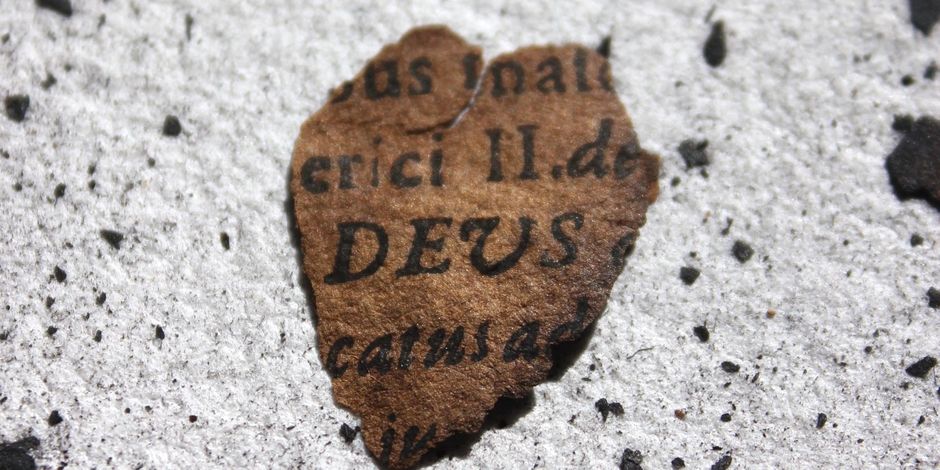 us mal
erici II.de
DEUS
catus ad
ju